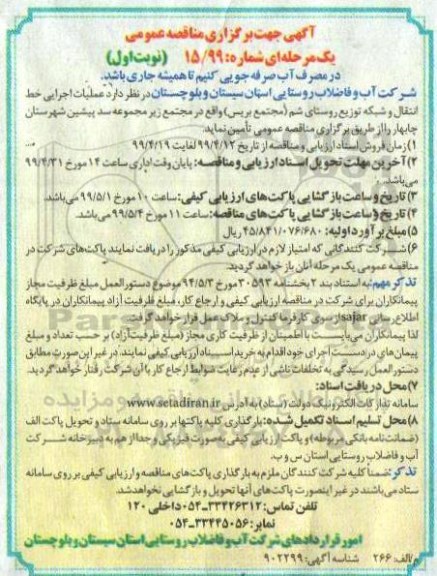 آگهی جهت برگزاری مناقصه عمومی
یک مرحله‌ای شماره: ۱۵/۹۹ (نوبت اول)
در مصرف آب صرفه جویی کنیم تا همیشه جاری باشد.
شرکت آب و فاضلاب روستایی استان سیستان و بلوچستان در نظر دارد عملیات اجرایی خط
انتقال و شبکه توزیع روستای شم (مجتمع بریس) واقع در مجتمع زیر مجموعه سد پیشین شهرستان
چابهار را از طریق برگزاری مناقصه عمومی تأمین نماید.
۱) زمان فروش اسناد ارزیابی و مناقصه از تاریخ ۹۹/۴/۱۲ لغایت ۹۹/۴/۱۹
۲) آخرین مهلت تحویل اسناد ارزیابی و مناقصه: پایان وقت اداری ساعت ۱۴ مورخ ۹۹/۴/۳۱
می‌باشد.
۳) تاریخ و ساعت بازگشایی پاکت‌های ارزیابی کیفی: ساعت ۱۰ مورخ ۹۹/۵/۱ می‌باشد.
۴) تاریخ و ساعت بازگشایی پاکت‌های مناقصه: ساعت ۱۱ مورخ ۹۹/۵/۴ می‌باشد.
۵) مبلغ برآورد اولیه: ۴۵/۸۴۱/۰۷۶/۶۸۰ ریال
۶) شرکت کنندگانی که امتیاز لازم در ارزیابی کیفی مذکور را دریافت نمایند پاکت‌های شرکت در
مناقصه عمومی یک مرحله آنان باز خواهد گردید.
تذکر مهم: به استناد بند ۲ بخشنامه ۳۰۵۹۳ مورخ ۹۴/۵/۳ موضوع دستورالعمل مبلغ ظرفیت مجاز
پیمانکاران برای شرکت در مناقصه ارزیابی کیفی و ارجاع کار، مبلغ ظرفیت آزاد پیمانکاران در پایگاه
اطلاع رسانی sajar از سوی کارفرما کنترل و ملاک عمل قرار خواهد گرفت.
لذا پیمانکاران می‌بایست با اطمینان از ظرفیت کاری مجاز (مبلغ ظرفیت آزاد) بر حسب تعداد و مبلغ
پیمان‌های در دست اجرای خود اقدام به خرید اسناد ارزیابی کیفی نمایند. در غیر این صورت مطابق
دستورالعمل رسیدگی به تخلفات ناشی از عدم رعایت ضوابط ارجاع کار با آن شرکت رفتار خواهد گردید.
۷) محل دریافت اسناد:
سامانه تدارکات الکترونیک دولت (ستاد) به آدرس www.setadiran.ir
۸) محل تسلیم اسناد تکمیل شده: بارگذاری کلیه پاکتها بر روی سامانه ستاد و تحویل پاکت الف
(ضمانت‌نامه بانکی مربوطه) و پاکت ارزیابی کیفی به صورت فیزیکی و جداگانه هم به دبیرخانه شرکت
آب و فاضلاب روستایی استان س و ب.
تذکر: ضمنا کلیه شرکت کنندگان ملزم به بارگذاری پاکت‌های مناقصه و ارزیابی کیفی بر روی سامانه
ستاد می‌باشند در غیر اینصورت پاکت‌های آنها تحویل و بازگشایی نخواهد شد.
تلفن تماس: ۳۳۴۲۶۳۱۲-۰۵۴ داخلی ۱۲۰
نمابر: ۳۳۴۴۵۰۵۶-۰۵۴
امور قراردادهای شرکت آب و فاضلاب روستایی استان سیستان و بلوچستان
م/الف: ۲۶۶ شناسه آگهی: ۹۰۲۲۹۹